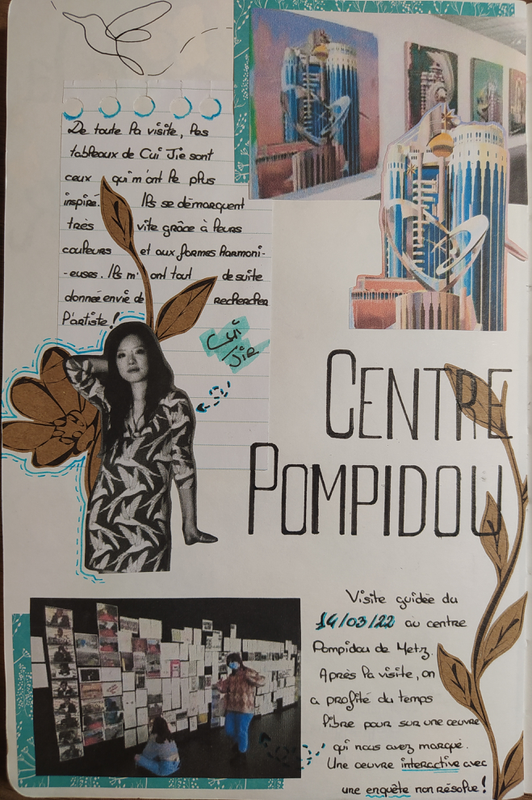 De toute la visite, les
tableaux de Cui Jie sont
ceux qui m'ont le plus
inspirée. Ils se démarquent
très vite grâce à leurs
couleurs et aux formes harmoni-
-euses. Ils m'ont tout de suite
donnée envie de rechercher
l'artiste !
Cui
Jie
CENTRE
POMPIDOU
Visite guidée du
14/03/22 au centre
Pompidou de Metz.
Après la visite, on
a profité du temps
libre pour sur une œuvre
qui nous avez marqué.
Une œuvre interactive avec
une enquête non résolue !